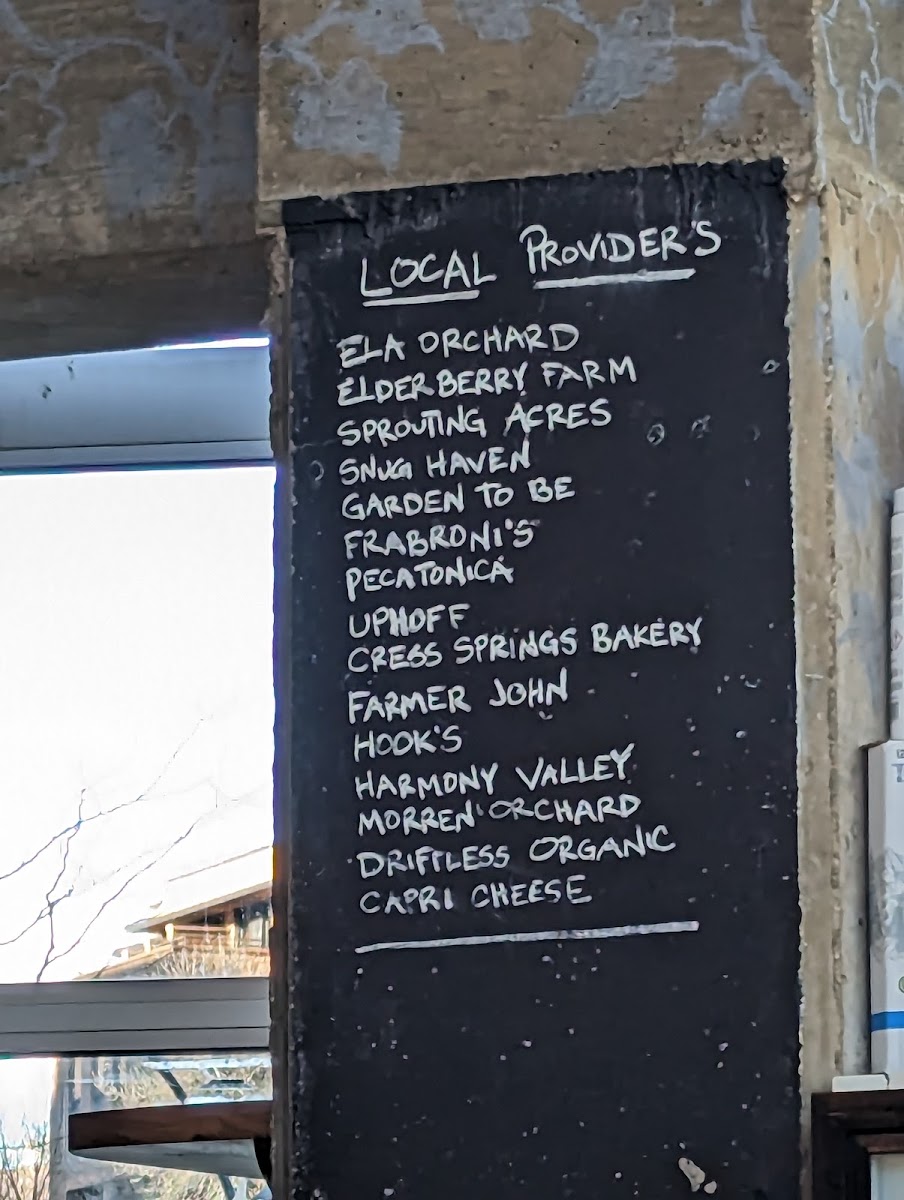 LOCAL PROVIDER'S
ELA ORCHARD
ELDERBERRY FARM
SPROUTING ACRES
SNUG HAVEN
GARDEN TO BE
FRABRONI'S
PECATONICA
UPHOFF
CRESS SPRINGS BAKERY
FARMER JOHN
HOOK'S
HARMONY VALLEY
MORREN ORCHARD
DRIFTLESS ORGANIC
CAPRI CHEESE